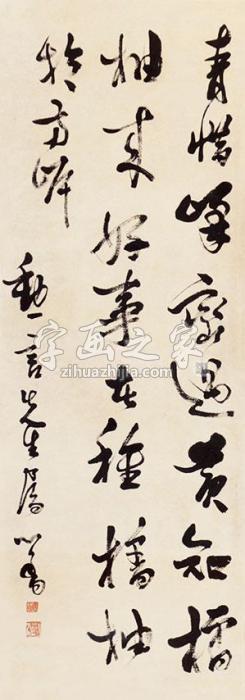 青惜峰巒過黃知橘
柚來好事者種橘柚
於兩岸
言先生屬心畬
字画之家
zihuazhijia.com